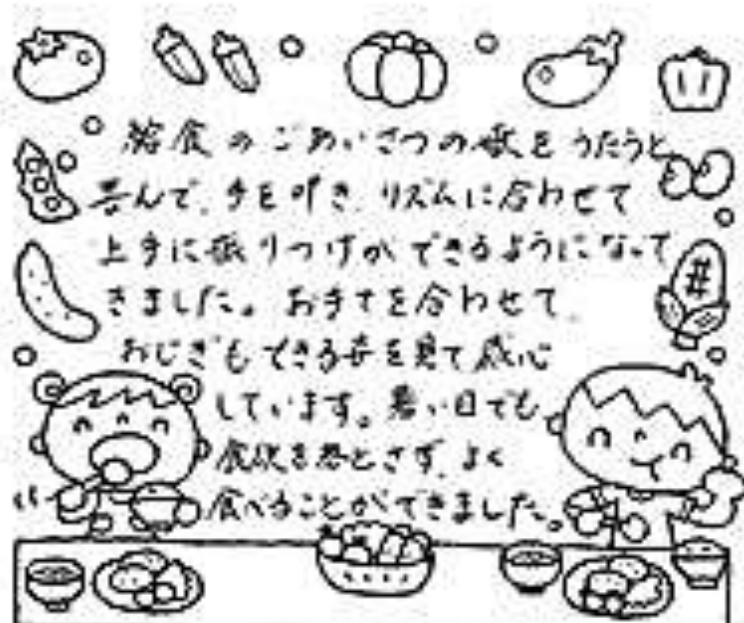 給食のごあいさつの歌をうたうと
喜んで、手を叩き、リズムに合わせて
上手に振りつけができるようになって
きました。お手てを合わせて、
おじぎもできる姿を見て感心
しています。暑い日でも
食欲を落とさず、よく
食べることができました。